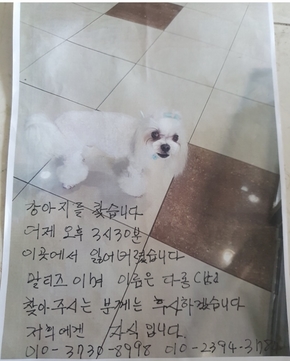 강아지를 찾습니다
어제 오후 3시30분
이곳에서 잃어버렸습니다
말티즈 이며 이름은 다롱
찾아주시는 분께는 후사하겠습니다
저희에겐 자식 입니다.
010-3730-8998 010-2394-